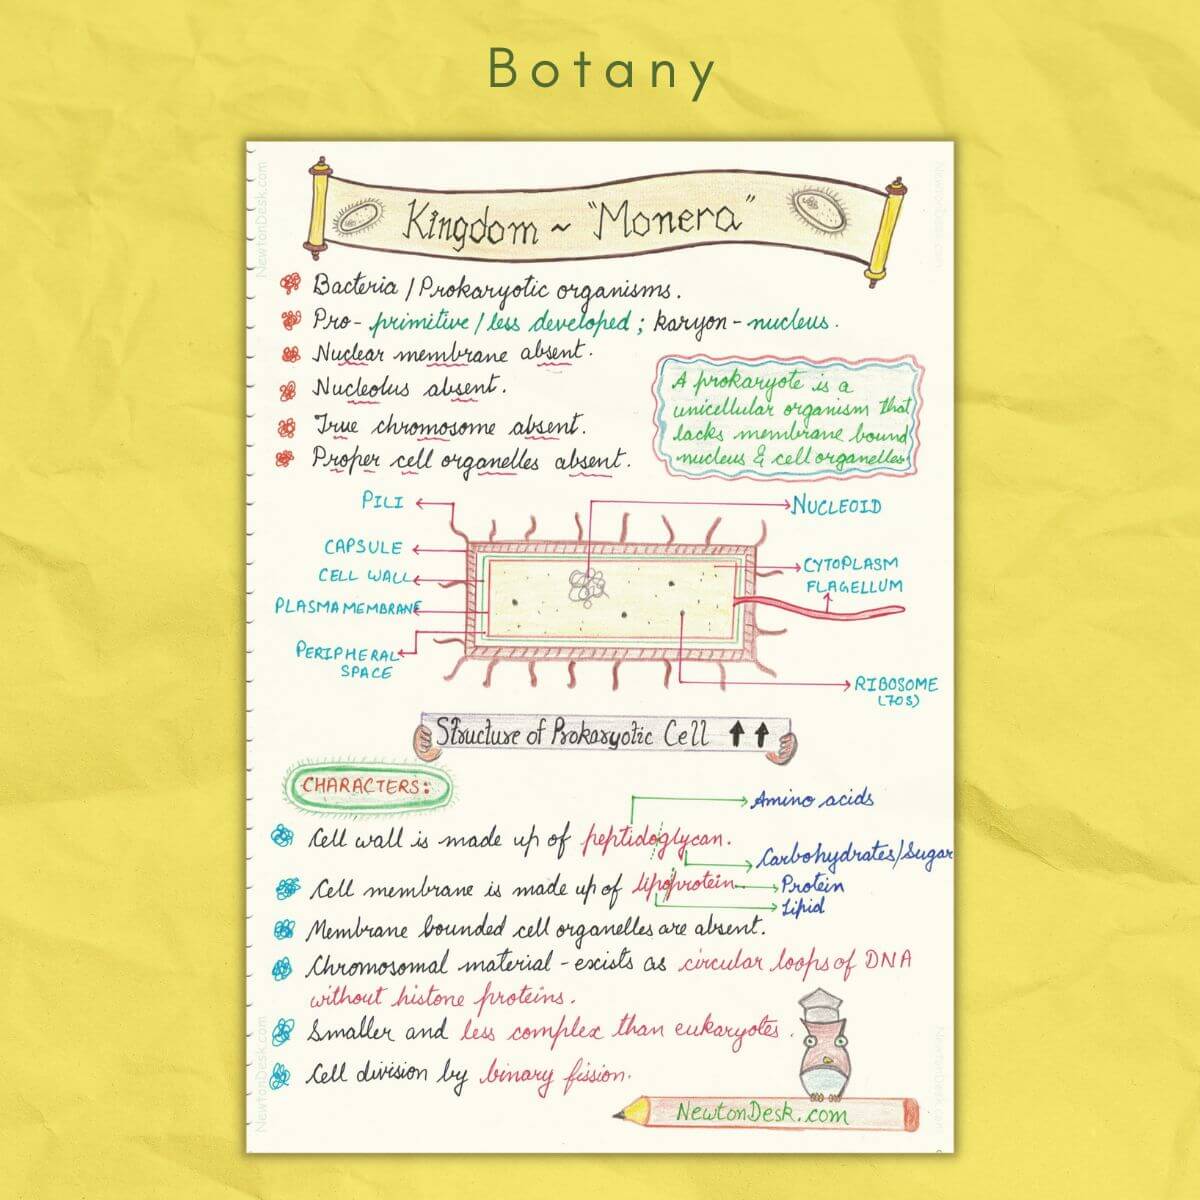 Botany
Kingdom ~ "Monera"
Bacteria / Prokaryotic organisms.
Pro- primitive / less developed ; karyon - nucleus.
Nuclear membrane absent.
Nucleolus absent.
True chromosome absent.
Proper cell organelles absent.
A prokaryote is a
unicellular organism that
lacks membrane bound
nucleus & cell organelles
PILI
NUCLEOID
CAPSULE
CYTOPLASM
CELL WALL
FLAGELLUM
PLASMA MEMBRANE
PERIPHERAL
SPACE
RIBOSOME
(70S)
Structure of Prokaryotic Cell
CHARACTERS:
Amino acids
Cell wall is made up of peptidoglycan.
Carbohydrates/Sugar
Cell membrane is made up of lipoprotein
Protein
Lipid
Membrane bounded cell organelles are absent.
Chromosomal material - exists as circular loops of DNA
without histone proteins.
Smaller and less complex than eukaryotes.
Cell division by binary fission.
NewtonDesk.com
NewtonDesk.com
NewtonDesk.com
NewtonDesk.com
NewtonDesk.com